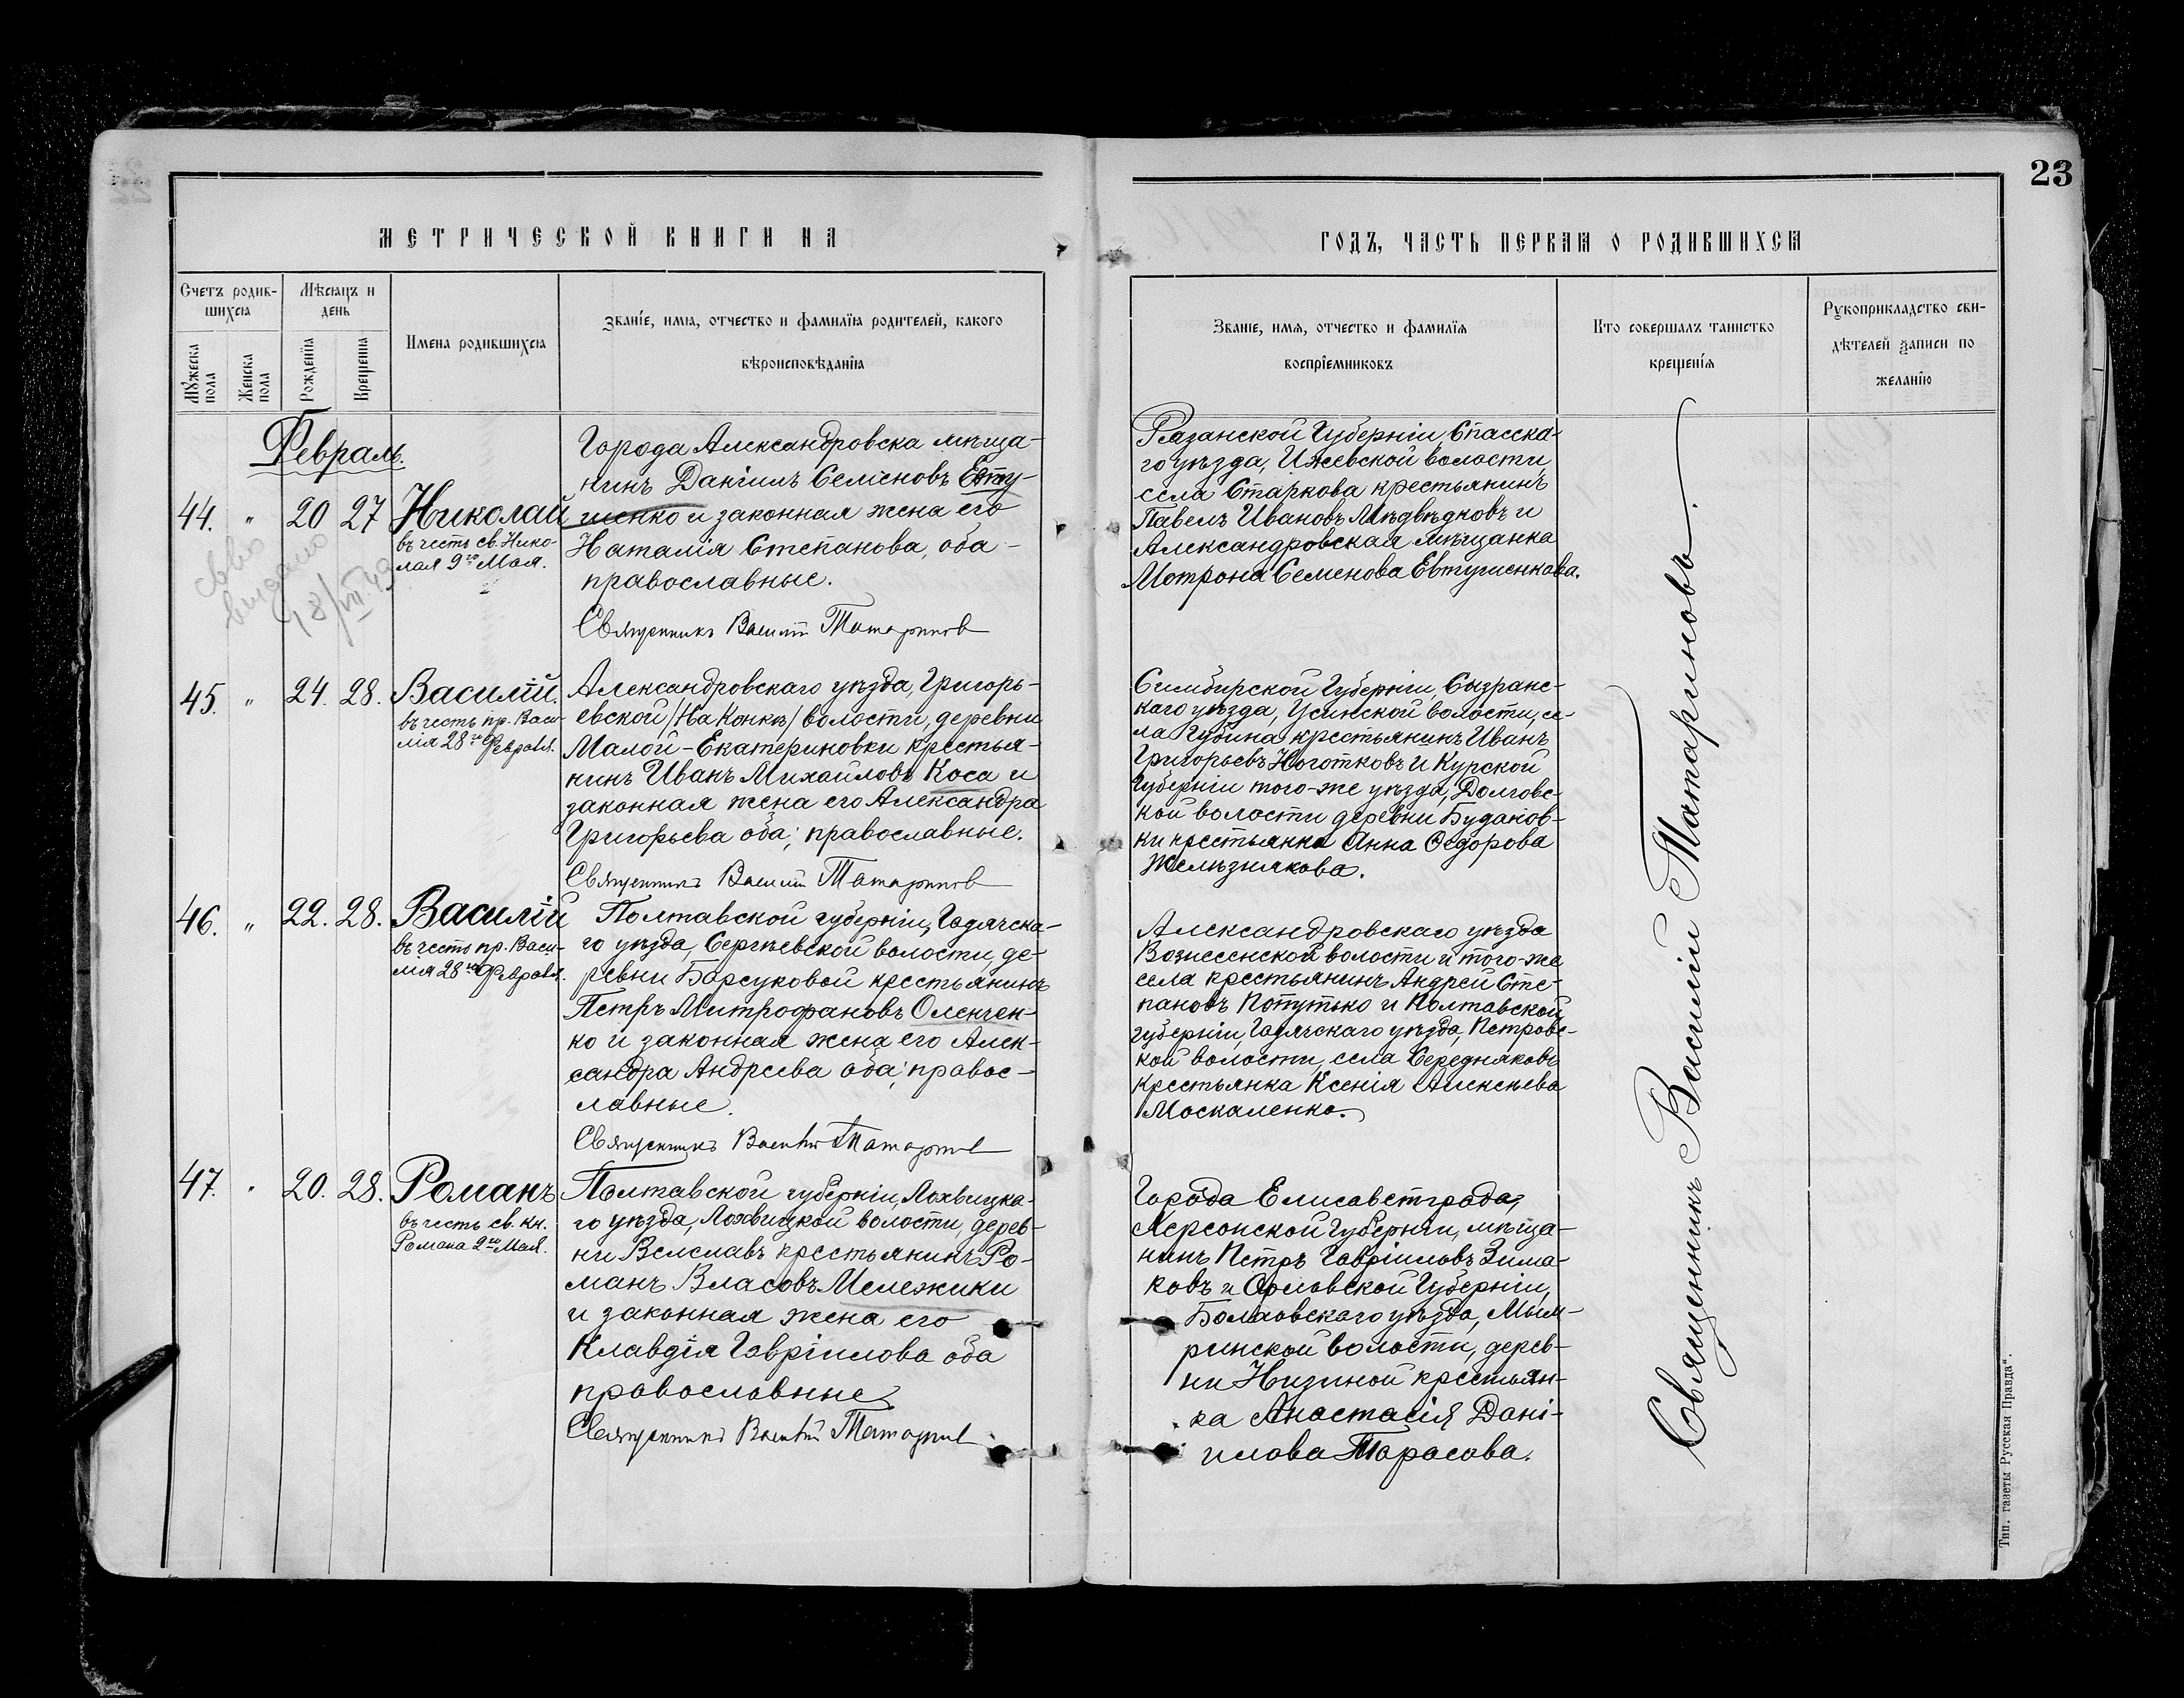 23
МЕТРИЧЕСКОЙ КНИГИ НА
ГОДЪ, ЧАСТЬ ПЕРВАЯ О РОДИВШИХСЯ
Счетъ родив-
шихся
Мѣсяцъ и
день
Мужеска
пола
Женска
пола
Рожденїя
Крещенїя
Имена родившихся
Званїе, имя, отчество и фамилїя родителей, какого
вѣроисповѣданїя
Званїе, имя, отчество и фамилїя
воспрїемниковъ
Кто совершалъ таинство
крещенїя
Рукоприкладство сви-
дѣтелей записи по
желанїю
Февраль.
44. " 20 27 Николай
въ честь св. Нико-
лая 9го Мая.
выдано
18/VII 43
Города Александровска мѣща-
нинъ Данiилъ Семеновъ Евту-
шенко и законная жена его
Наталiя Степанова, оба
православные.
Священникъ Василiй Татариновъ
Рязанской Губернiи, Спасска-
го уѣзда, Ижевской волости,
села Старкова крестьянинъ
Павелъ Ивановъ Мѣдвѣдковъ и
Александровская мѣщанка
Мотрона Семенова Евтушенкова.
45. " 24. 28. Василiй.
въ честь пр. Васи-
лiя 28го Февраля.
Александровскаго уѣзда, Григорь-
евской /На Конкѣ/ волости, деревни
Малой-Екатериновки крестья-
нинъ Иванъ Михайловъ Коса и
законная жена его Александра
Григорьева оба, православные.
Священникъ Василiй Татариновъ
Симбирской Губернiи, Сызранс-
каго уѣзда, Усинской волости, се-
ла Губина крестьянинъ Иванъ
Григорьевъ Ноготковъ и Курской
Губернiи того-же уѣзда, Долговс-
кой волости деревни Будановки
крестьянка Анна Ѳедорова
Желѣзнякова.
46. " 22. 28. Василiй
въ честь пр. Васи-
лiя 28го Февраля.
Полтавской губернiи, Гадячска-
го уѣзда, Сергѣевской волости, де-
ревни Барсуковой крестьянинъ
Петръ Митрофановъ Оленчен-
ко и законная жена его Алек-
сандра Андреева оба, правос-
лавные.
Священникъ Василiй Татариновъ
Александровскаго уѣзда
Вознесенской волости и того-же
села крестьянинъ Андрей Сте-
пановъ Потутько и Полтавской
губернiи, Гадячскаго уѣзда, Петровс-
кой волости, села Середняковъ
крестьянка Ксенiя Алексѣева
Москаленко.
47. " 20. 28. Романъ
въ честь св. кн.
Романа 2го Мая.
Полтавской губернiи, Лохвицка-
го уѣзда, Лохвицкой волости, дерев-
ни Веселавъ крестьянинъ Ро-
манъ Власовъ Мележики
и законная жена его
Клавдiя Гаврiилова оба
православные
Священникъ Василiй Татариновъ
Города Елисаветграда,
Херсонской Губернiи, мѣща-
нинъ Петръ Гаврiиловъ Зима-
ковъ и Орловской Губернiи,
Болховскаго уѣзда, Мым-
ринской волости, дерев-
ни Низиной крестьян-
ка Анастасiя Данi-
илова Тарасова.
Священникъ Василiй Татариновъ.
Тип. газеты Русская Правда".